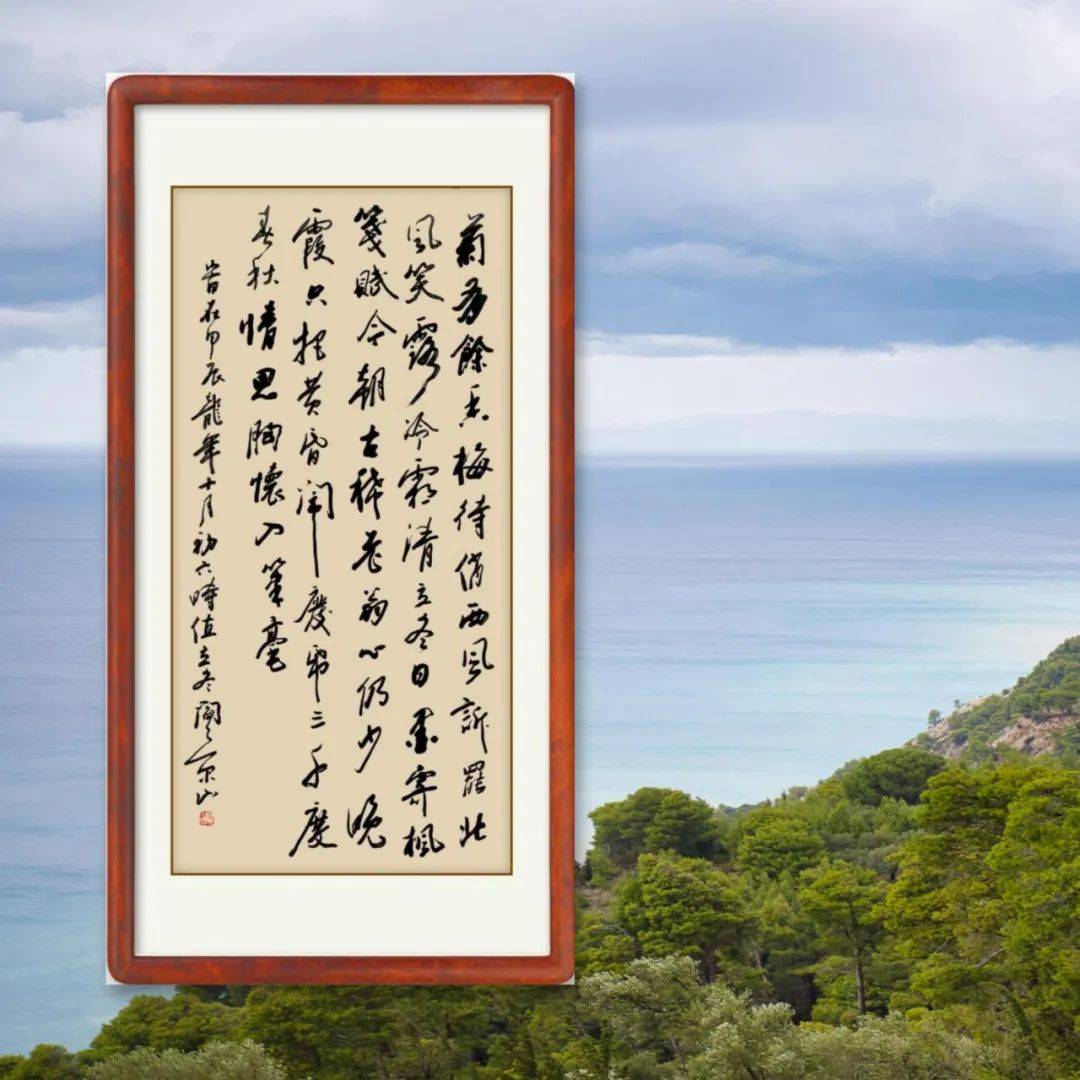 菊有餘香梅待俏西風訴罷北
風笑露冷霜清立冬日墨寄楓
箋賦今朝古稀老翁心仍少晚
霞只把黄昏闹三千度
春秋情思胸懷入筆毫
在甲辰龍年十月初六時值立冬京山